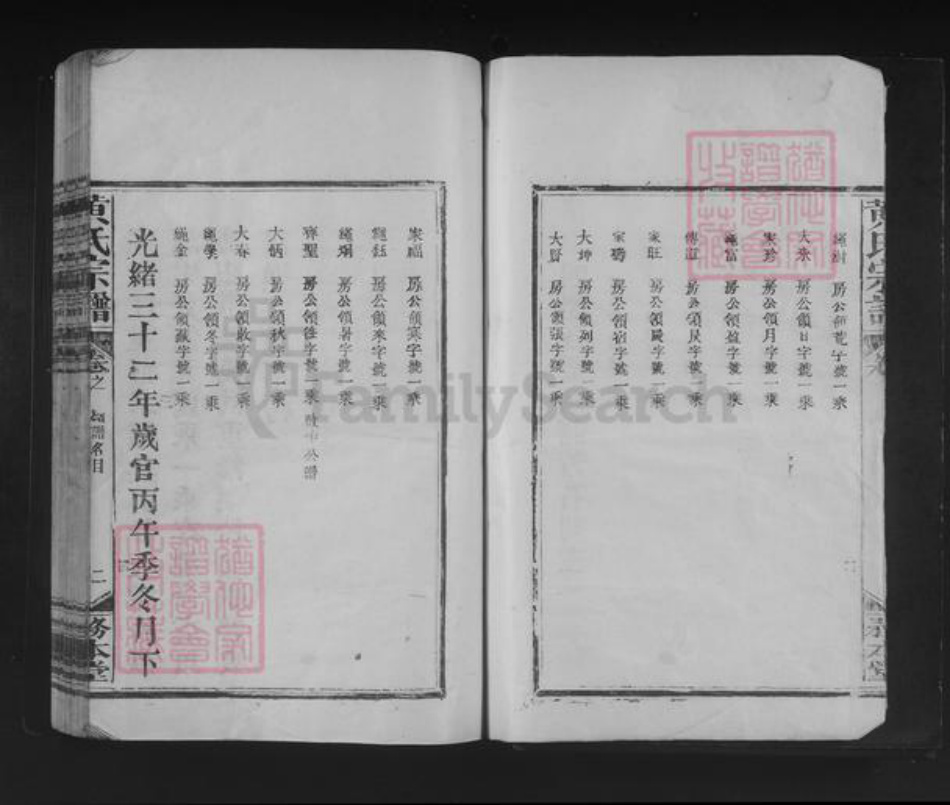 黃氏宗譜
卷
務本堂
繩樹 房公領荒字號一乘
大永 房公領日字號一乘
宋珍 房公領月字號一乘
繩富 房公領盈字號一乘
傳道 房公領昃字號一乘
家旺 房公領宿字號一乘
大坤 房公領列字號一乘
大賢 房公領張字號一乘
家福 房公領寒字號一乘
繩鈺 房公領來字號一乘
房公領暑字號一乘
齊聖 房公領往字號一乘
大炳 房公領秋字號一乘
大春 房公領收字號一乘
繩學 房公領冬字號一乘
繩金 房公領藏字號一乘
光緒三十二年歲官丙午季冬月下
黃氏宗譜
卷之
領譜名目
二
務本堂
FamilySearch